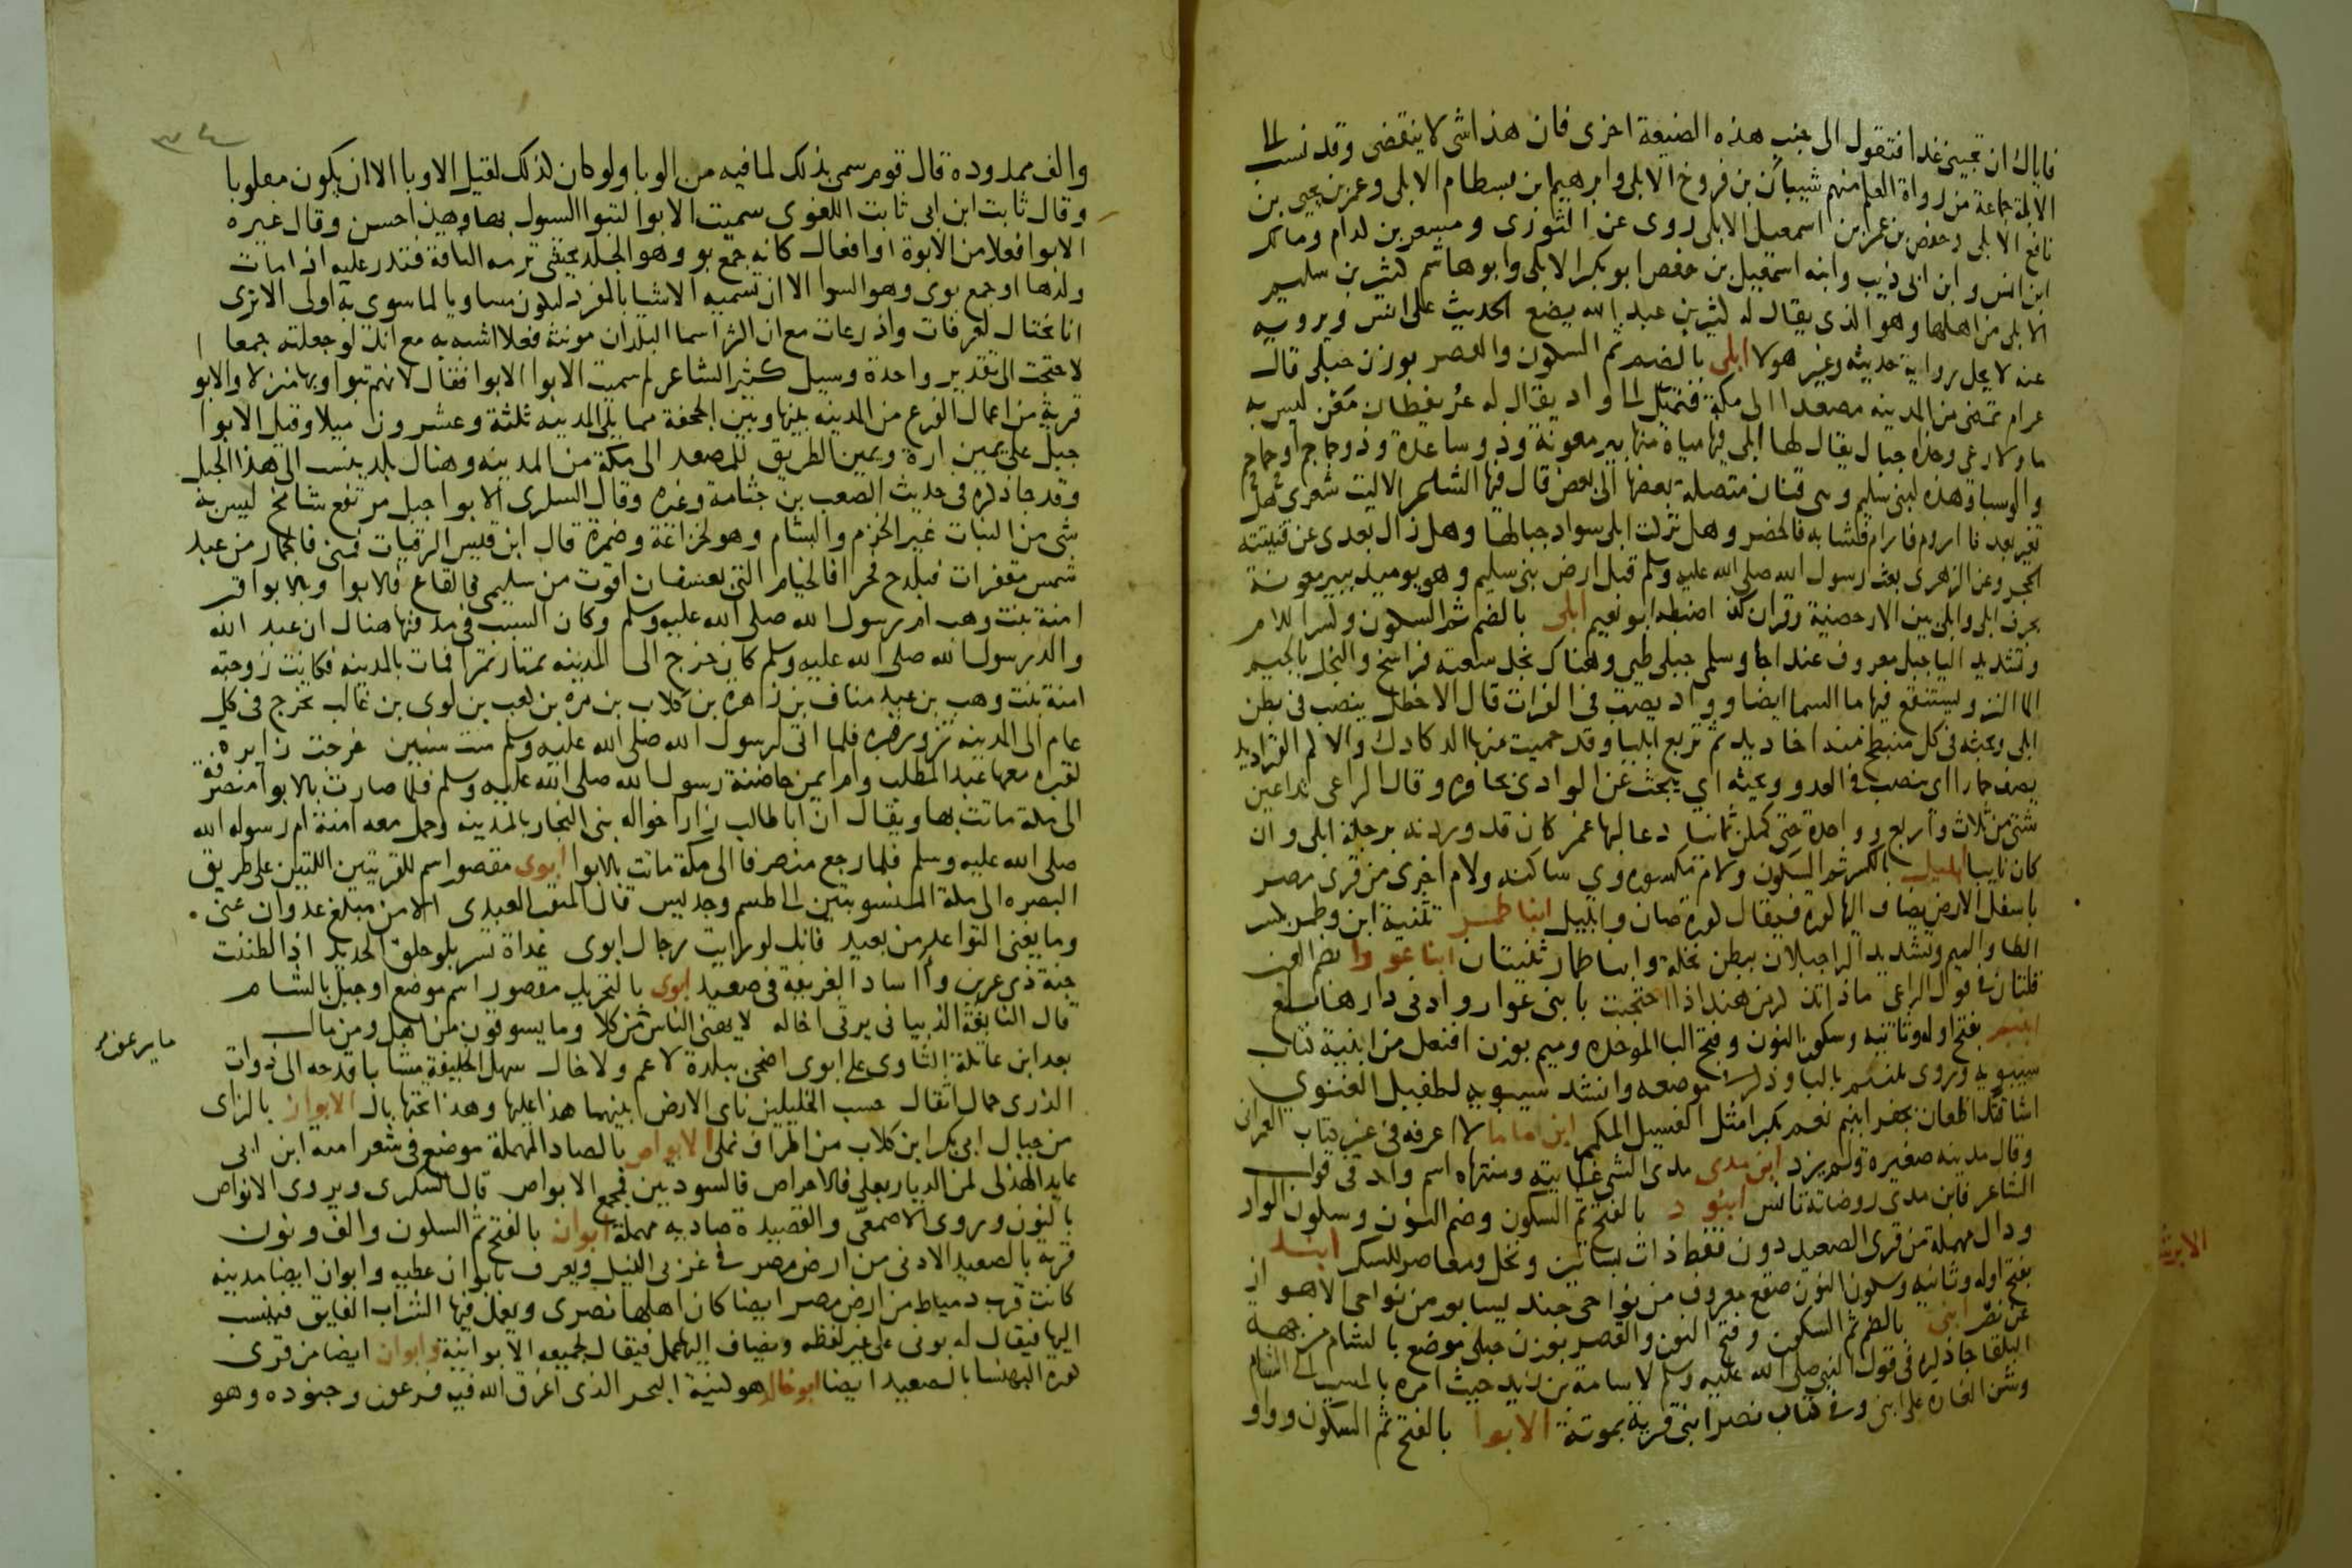 فاياك ان تجيئ غدا فتقول الى جنب هذه الضيعة اخرى فان هذا شى لا ينقضى وقد نسب الى
الابلة جماعة من رواة العلم منهم شيبان بن فروخ الابلى وابرهيم ابن بسطام الابلى وعمر بن يحيى بن
نافع الابلى وحفص بن عمر ابن اسمعيل الابلى روى عن الثورى ومسعر بن كدام ومالك
ابن انس وابن ابى ذيب وابنه اسمعيل بن حفص ابو بكر الابلى وابو هاشم كثير بن سليم
الابلى من اهلها وهو الذى يقال له كثير بن عبد الله يضع الحديث على انس ويرويه
عنه لا يحل رواية حديثه وغير هولا ابلى بالضم ثم السكون والقصر بوزن حبلى قال
عرام تمضى من المدينه مصعدا الى مكة فتميل الى واد يقال له عريفطان معن ليس به
ما ولا رعى وحذاه جبال يقال لها ابلى فيها مياه منها بير معونة وذو ساعدة وذو جماجم او حماحم
والوسبا وهذه لبنى سليم وهى قنان متصلة بعضها الى بعض قال فيها الشاعر الا ليت شعرى هل
تغير بعدنا اروم فارام فشابه فالحضر وهل تركت ابلى سواد جبالها وهل زال بعدى عن قنينته
الحجر وعن الزهرى بعث رسول الله صلى الله عليه وسلم قبل ارض بنى سليم وهو يوميذ ببير معونة
بجرف ابلى وابلى بين الارحضية وقران كذا ضبطه ابو نعيم ابلى بالضم ثم السكون وكسر اللام
وتشديد اليا جبل معروف عند اجا وسلمى جبلى طى وهناك نجل سعته فراسخ والنجل بالجيم
الما النز ويستنقع فيها ما السما ايضا وواد يصب فى الفرات قال الاخطل ينصب فى بطن
ابلى ويبحثه فى كل منبطح منه اخاديد ثم تربع ابليا وقد حميت منها الدكادك والاكم القراديد
يصف حمارا اى ينصب فى العدو ويبحثه اي يبحث عن الوادى بحافره وقال الراعى تداعين
شتى من ثلاث واربع وواحدة حتى كملن ثمانيا دعا لبها عمر كان قد وردنه برحلة ابلى وان
كان نايبا ابليل بالكسر ثم السكون ولام مكسوره وى ساكنه ولام اخرى من قرى مصر
باسفل الارض يضاف اليها كورة فيقال كورة صان وابليل ابنا طمر تثنية ابن وطمر بكسر
الطا والميم وتشديد الرا جبلان ببطن نخلة وابنا طمار ثنيتان ابنا عوار بضم العين
قلتان فى قول الراعى ماذا تذكر من هند اذا احتجبت بابنى عوار وادنى دارها بلع
ابنبم بفتح اوله وثانيه وسكون النون وفتح البا الموحده وميم بوزن افنعل من ابنية كتاب
سيبويه وروى يلنبم باليا وذكر فى موضعه وانشد سيبويه لطفيل الغنوي
اشاقتك اظعان بجفر ابنبم نعم بكرا مثل الفسيل المكمم ابن ماما لا اعرفه فى غير كتاب العمرانى
وقال مدينه صغيرة ولم يزد ابن مدى مدى الشى غايته ومنتهاه اسم واد فى قول
الشاعر فابن مدى روضاته تانس ابنود بالفتح ثم السكون وضم النون وسكون الواو
ودال مهملة من قرى الصعيد دون قفط ذات بساتين ونخل ومعاصر للسكر ابند
بفتح اوله وثانيه وسكون النون صقع معروف من نواحى جند يسابور من نواحى الاهواز
عن نصر ابنى بالضم ثم السكون وفتح النون والقصر بوزن حبلى موضع بالشام من جهة
البلقا جا ذكره فى قول النبى صلى الله عليه وسلم لاسامة بن زيد حيث امره بالمسير الى الشام
وشن الغاره على ابنى وفى كتاب نصر ابنى قرية بموتة الابوا بالفتح ثم السكون وواو
الابرند
والف ممدوده قال قوم سمى بذلك لما فيه من الوبا ولو كان لذلك لقيل الاوبا الا ان يكون مقلوبا
وقال ثابت ابن ابى ثابت اللغوى سميت الابوا لتبوا السيول بها وهذا احسن وقال غيره
الابوا فعلا من الابوة او افعال كانه جمع بو وهو الجلد يحشى ترمه الناقة فتدر عليه اذا مات
ولدها او جمع بوى وهو السوا الا ان تسميه الاشيا بالمفرد ليكون مساويا لما سوى به اولى الا ترى
انا نحتال لعرفات واذرعات مع ان اكثر اسما البلدان مونثة ففعلا اشبه به مع انك لو جعلته جمعا
لاحتجت الى تقدير واحدة وسيل كثير الشاعر لم سميت الابوا الابوا فقال لانهم تبووا بها منزلا والابوا
قرية من اعمال الفرع من المدينه بينها وبين الجحفة مما يلى المدينه ثلثة وعشرون ميلا وقيل الابوا
جبل على يمين ارة ويمين الطريق للمصعد الى مكة من المدينه وهناك بلد ينسب الى هذا الجبل
وقد جا ذكره فى حديث الصعب بن جثامة وغيره وقال السكرى الابوا جبل مرتفع شامخ ليس به
شى من النبات غير الخزم والبشام وهو لخزاعة وضمرة قال ابن قيس الرقيات فمنى فالجمار من عبد
شمس مقفرات فبلدح فحرا فالخيام التى بعسفان اقوت من سليمى فالقاع فالابوا وبالابوا قبر
امنة بنت وهب ام رسول الله صلى الله عليه وسلم وكان السبب فى دفنها هناك ان عبد الله
والد رسول الله صلى الله عليه وسلم كان خرج الى المدينه يمتار تمرا فمات بالمدينه فكانت زوجته
امنة بنت وهب بن عبد مناف بن زهرة بن كلاب بن مره بن كعب بن لوى بن غالب تخرج فى كل
عام الى المدينه تزور قبره فلما اتى لرسول الله صلى الله عليه وسلم ست سنين خرجت زايره
لقبره معها عبد المطلب وام ايمن حاضنة رسول الله صلى الله عليه وسلم فلما صارت بالابوا منصرفة
الى مكة ماتت بها ويقال ان ابا طالب زار اخواله بنى النجار بالمدينه وحمل معه امنة ام رسول الله
صلى الله عليه وسلم فلما رجع منصرفا الى مكة ماتت بالابوا ابوى مقصور اسم للقريتين اللتين على طريق
البصره الى مكة المنسوبتين الى طسم وجديس قال المثقب العبدى الا من مبلغ عدوان عنى
وما يغنى التواعد من بعيد فانك لو رايت رجال ابوى غداة تسربلوا حلق الحديد اذا لظننت
جنة ذى عرين واساد الغريفة فى صعيد ابوى بالتحريك مقصور اسم موضع او جبل بالشام
قال النابغة الذبيانى يرثى اخاله لا يهنى الناس ما يرعون من كلا وما يسوقون من اهل ومن مال
بعد ابن عاتكة الثاوى على ابوى اضحى ببلدة لا عم ولا خال سهل الخليقة مشا باقدحه الى ذوات
الذرى حمال اثقال حسب الخليلين ناى الارض بينهما هذا عليها وهذا تحتها بال الابواز بالزاى
من جبال ابى بكر ابن كلاب من اطراف نملى الابواص بالصاد المهملة موضع فى شعر امية ابن ابى
عايذ الهذلى لمن الديار بعلى فالاحراص فالسودتين فمجمع الابواص قال السكرى ويروى الانواص
بالنون وروى الاصمعى والقصيدة صاديه مهملة ابوان بالفتح ثم السكون والف ونون
قرية بالصعيد الادنى من ارض مصر فى غربى النيل ويعرف بابوان عطيه وابوان ايضا مدينه
كانت قرب دمياط من ارض مصر ايضا كان اهلها نصارى ويعمل فيها الشراب الفايق فينسب
اليها فيقال له بونى على غير لفظه ويضاف اليها عمل فيقال لجميعه الابوانية وابوان ايضا من قرى
كورة البهنسا بالصعيد ايضا ابو خالد هو كنية البحر الذى اغرق الله فيه فرعون وجنوده وهو
ما يرعون من